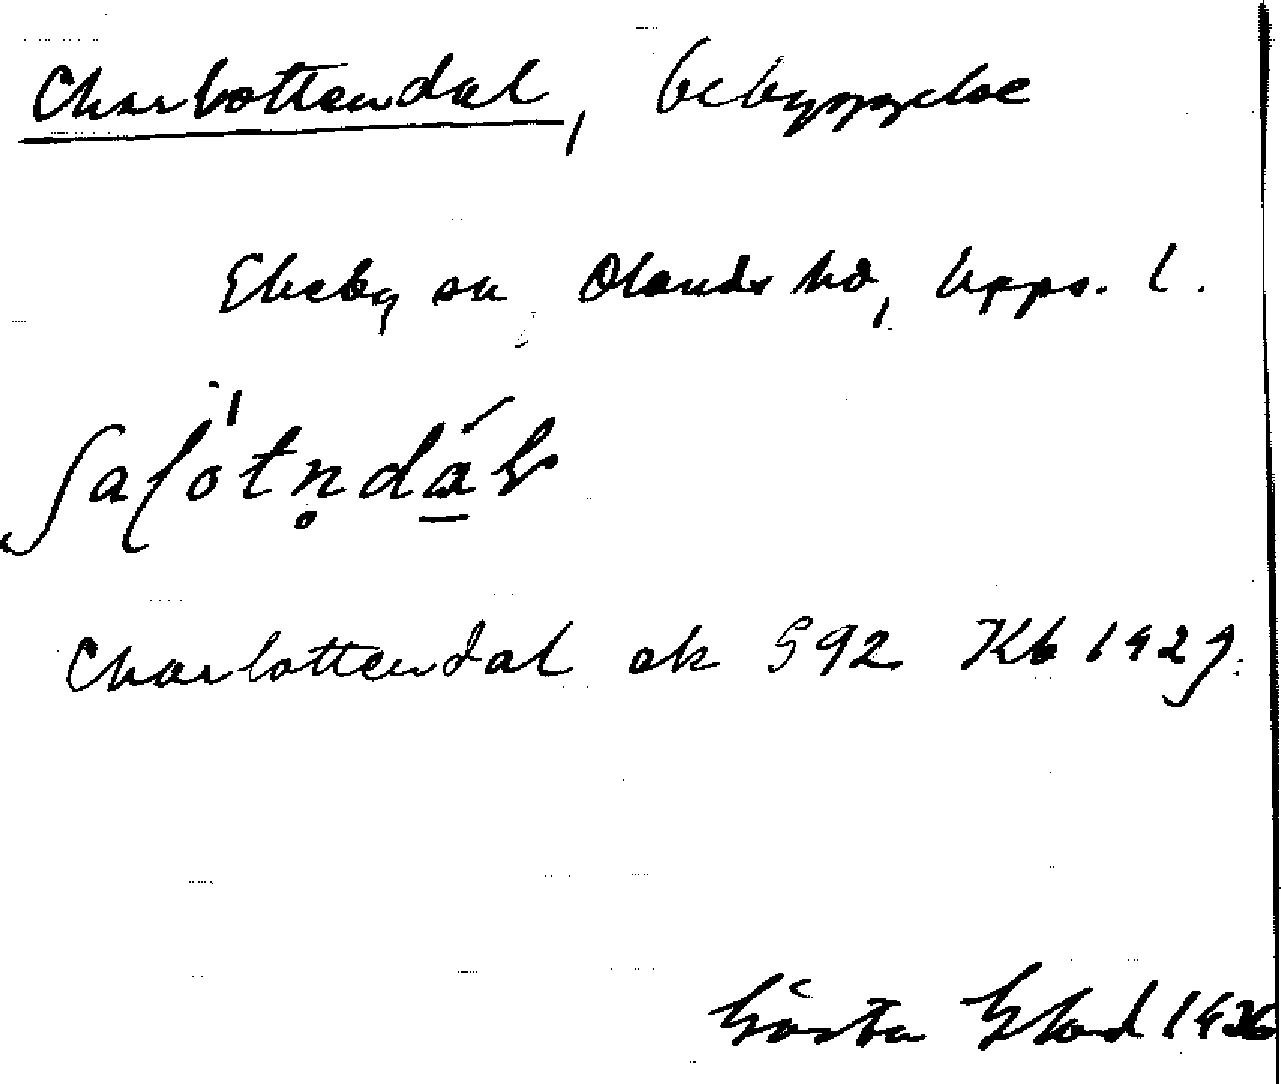 Charlottendal, bebyggelse
Ekeby sn, Olands hd, Upps. l.
Charlottendal ek 592 Kb 1927.
Gösta 1936